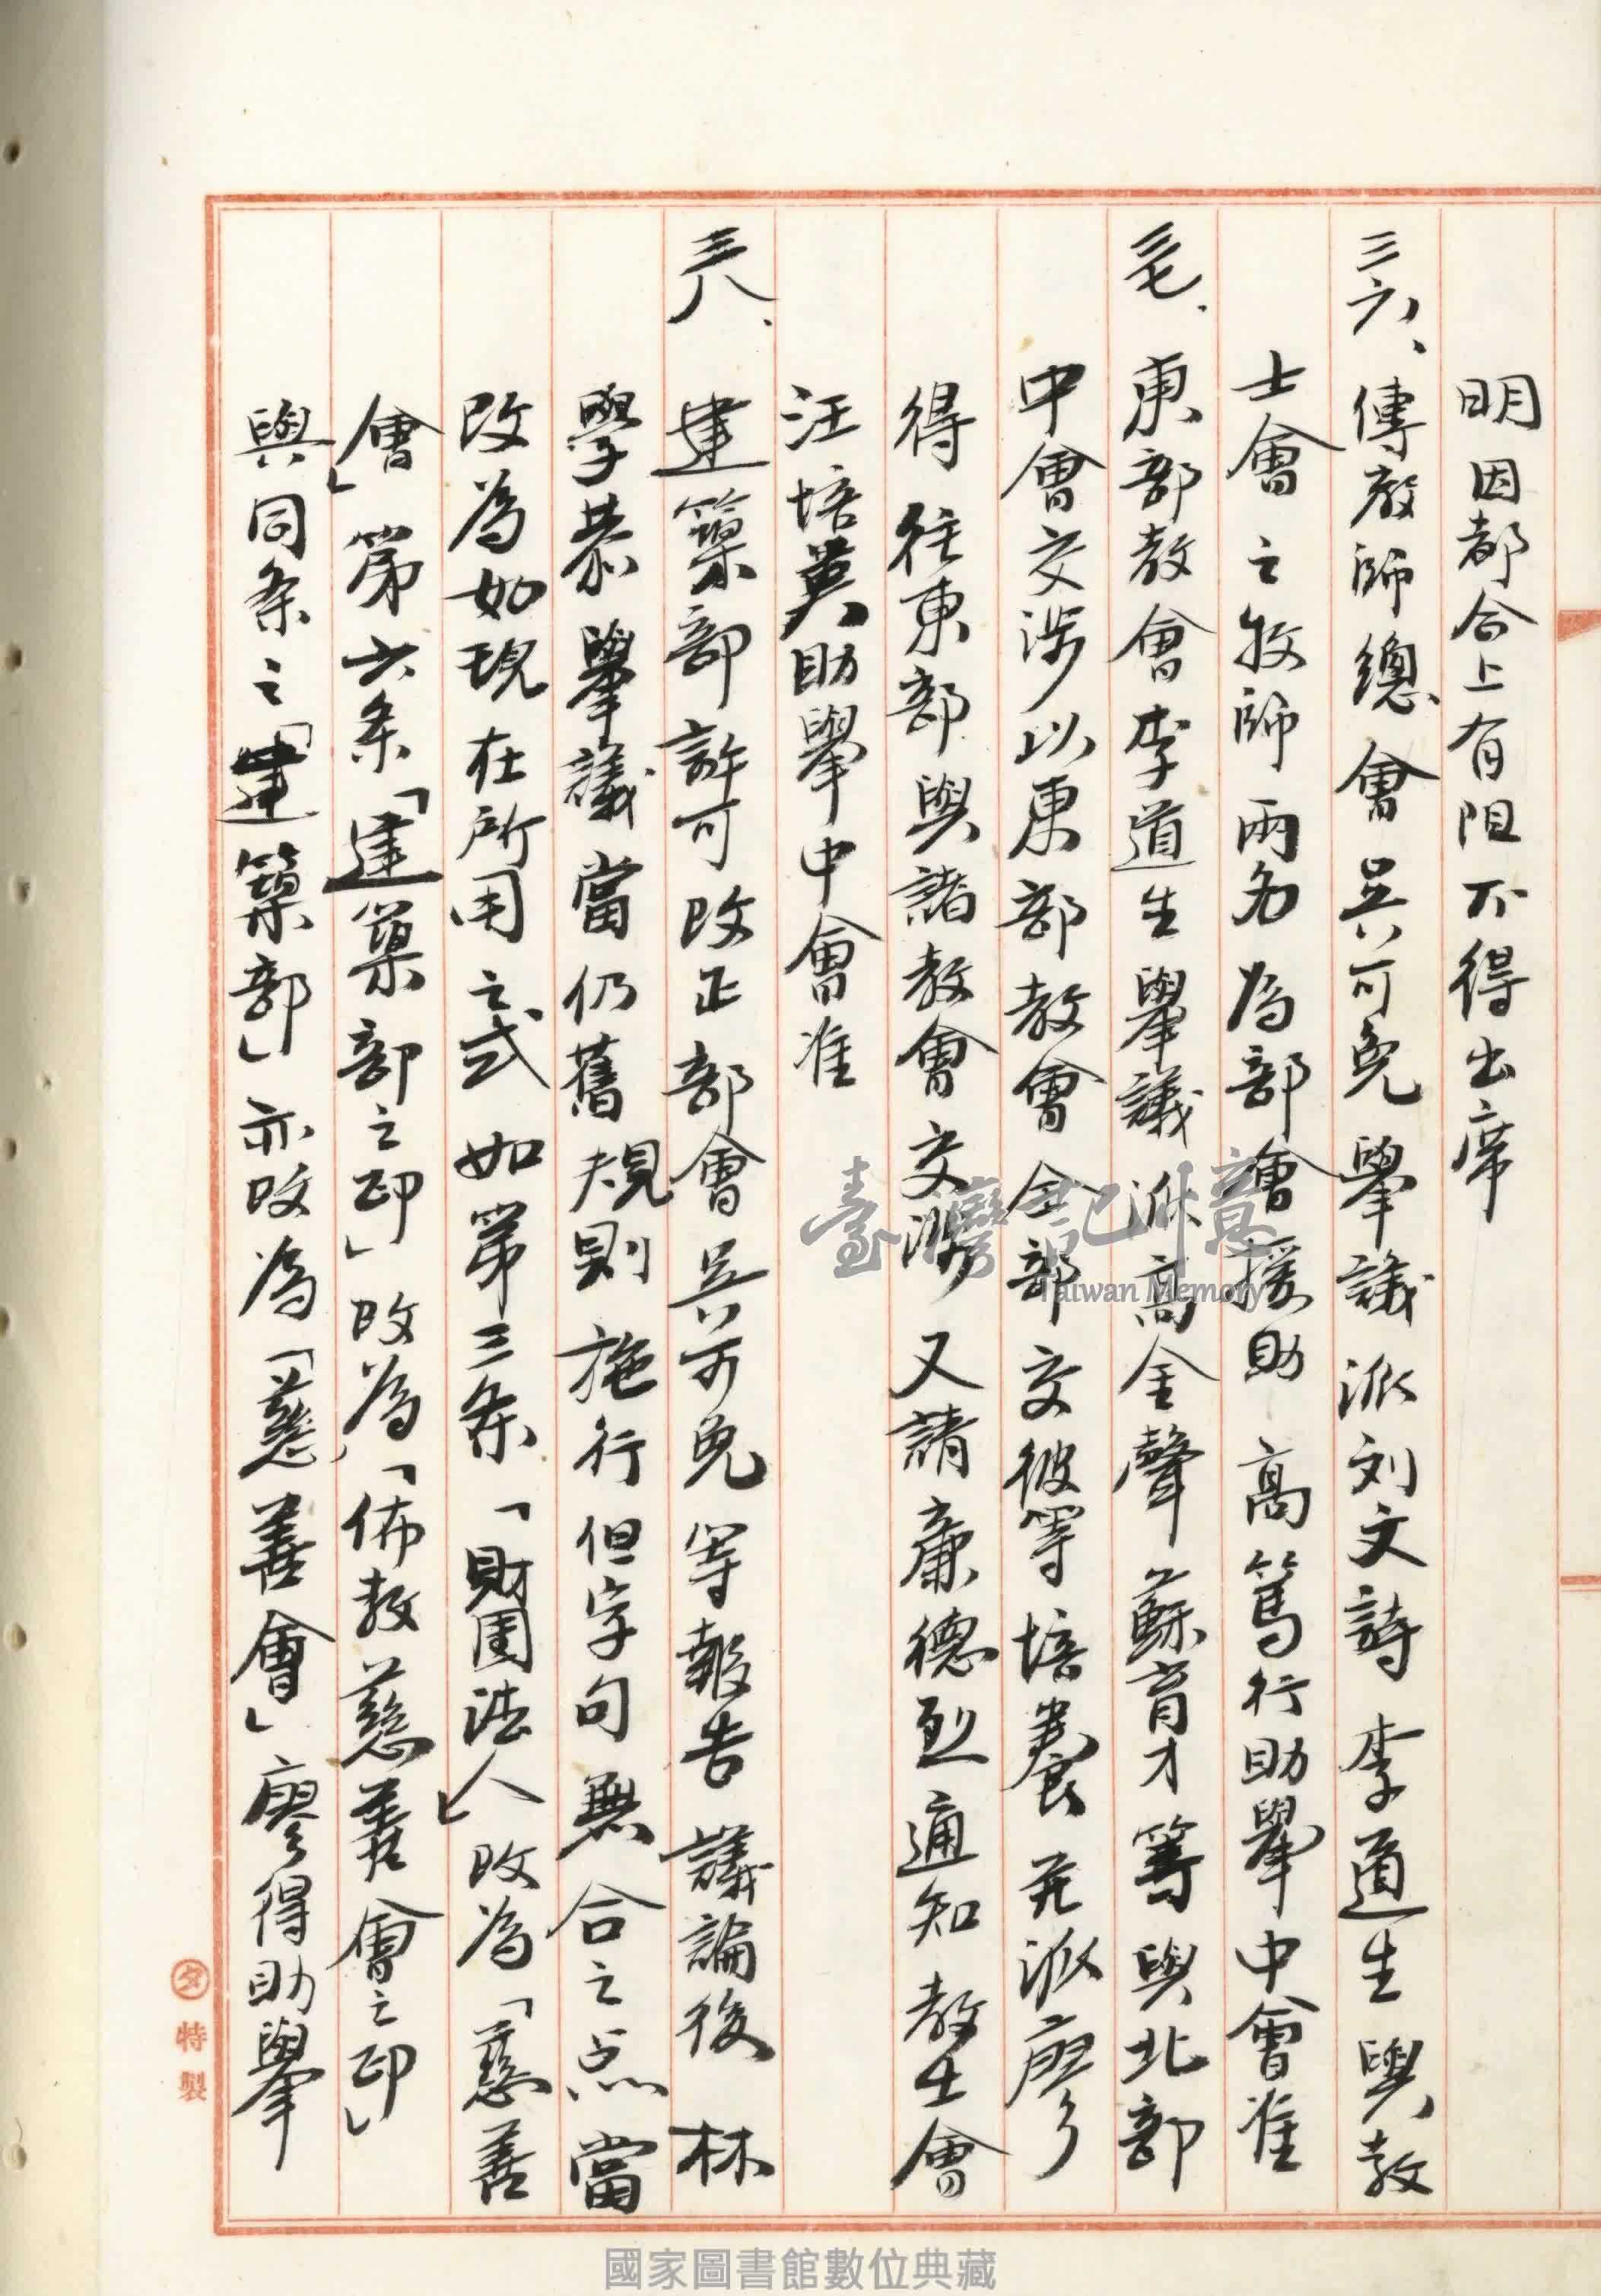 明因都合上有阻不得出席
三六、傳教師總會呈可免舉議派刘文詩李道生與教
士會之牧師兩名為部會援助高篤行助舉中會准
三七、東部教會李道生舉議派高金聲蘇育才等與北部
中會交涉以東部教會全部交彼等培養并派廖
得往東部與諸教會交涉又請廉德烈通知教士會
汪培英助舉中會准
三八、建築部許可改正部會呈可免等報告議論後林
學恭舉議當仍舊規則施行但字句無合之点當
改為如現在所用之式如第三条「財團法人」改為「慈善
會」第六条「建築部之印」改為「佈教慈善會之印」
與同条之「建築部」亦改為「慈善會」廖得助舉
臺灣記憶
Taiwan Memory
特製
國家圖書館數位典藏